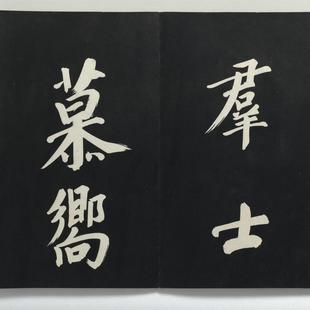 羣士
慕嚮